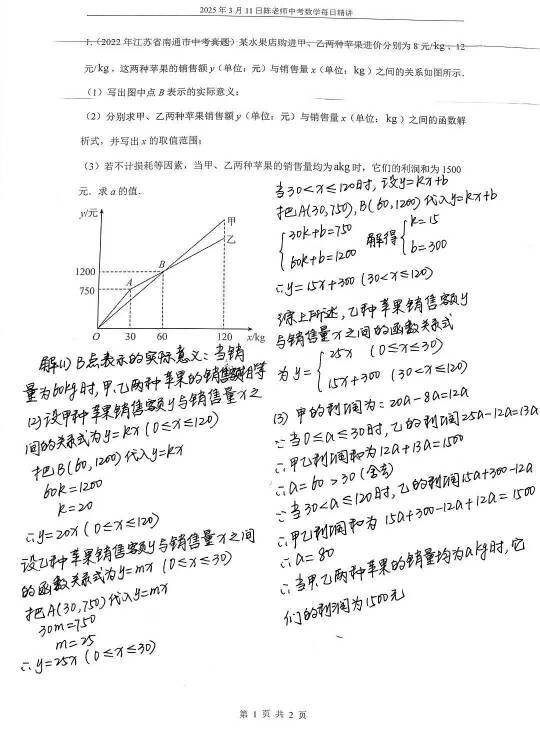 2025 年 3 月 11 日陈老师中考数学每日精讲
1.(2022 年江苏省南通市中考真题) 某水果店购进甲、乙两种苹果进价分别为 8 元/kg、12
元/kg，这两种苹果的销售额 y（单位：元）与销售量 x（单位：kg）之间的关系如图所示.
（1）写出图中点 B 表示的实际意义；
（2）分别求甲、乙两种苹果销售额 y（单位：元）与销售量 x（单位：kg）之间的函数解
析式，并写出 x 的取值范围；
（3）若不计损耗等因素，当甲、乙两种苹果的销售量均为 akg 时，它们的利润和为 1500
元．求 a 的值.
y/元
甲
乙
B
A
1200
750
O 30 60 120 x/kg
解(1) B点表示的实际意义：当销
量为60kg时，甲、乙两种苹果的销售额相等
(2)设甲种苹果销售额y与销售量x之
间的关系式为y=kx (0≤x≤120)
把B(60,1200)代入y=kx
60k=1200
k=20
∴y=20x (0≤x≤120)
设乙种苹果销售额y与销售量x之间
的函数关系式为y=mx (0≤x≤30)
把A(30,750)代入y=mx
30m=750
m=25
∴y=25x (0≤x≤30)
当30<x≤120时，设y=kx+b
把A(30,750),B(60,1200)代入y=kx+b
{30k+b=750 60k+b=1200 解得 {k=15 b=300
∴y=15x+300 (30<x≤120)
综上所述，乙种苹果销售额y
与销售量x之间的函数关系式
为y={25x (0≤x≤30)
15x+300 (30<x≤120)
(3) 甲的利润为：20a-8a=12a
∴当0≤a≤30时，乙的利润25a-12a=13a
∴甲乙利润和为12a+13a=1500
∴a=60>30(舍去)
∴当30<a≤120时，乙的利润15a+300-12a
∴甲乙利润和为 15a+300-12a+12a=1500
∴a=80
∴当甲、乙两种苹果的销量均为akg时，它
们的利润为1500元
第 1 页 共 2 页